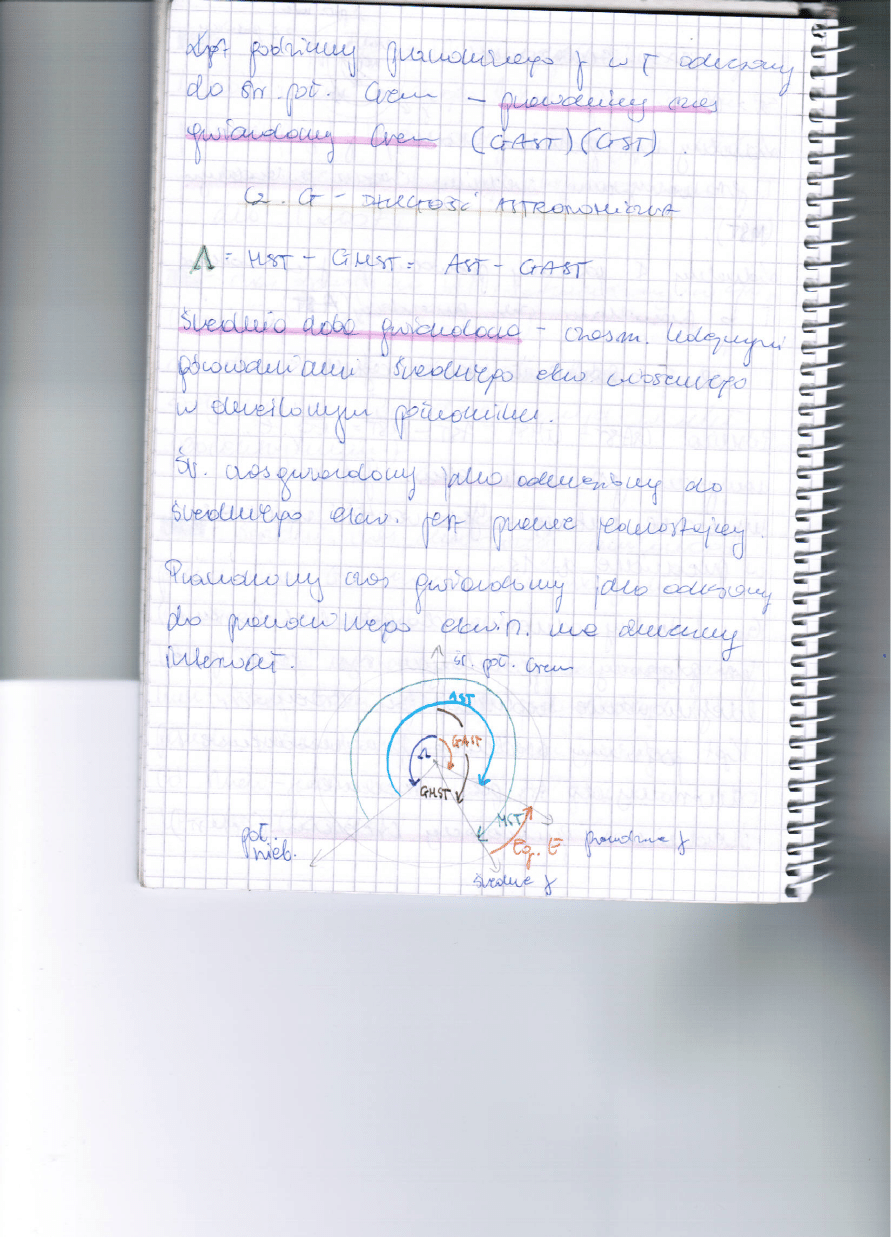 kąt godzinny prawdziwego γ w T odniesiony
do śr. poł. Green – prawdziwy czas
gwiazdowy Green (GAST)(GST).
G – DŁUGOŚĆ ASTRONOMICZNA
Λ = MST – GMST = AST – GAST
Średnia doba gwiazdowa – czas m. kolejnymi
górowaniami średniego ekw wiosennego
w danym południku.
Śr. czas gwiazdowy jako odniesiony do
średniego ekw. jest prawie jednostajny.
Prawdziwy czas gwiazdowy jako odniesiony
do prawdziwego ekwin. ma zmienny
interwał.
śr. poł. Green
AST
GAST
Λ
GMST
MST
Eq. E
poł.
nieb.
prawdziwe γ
średnie γ